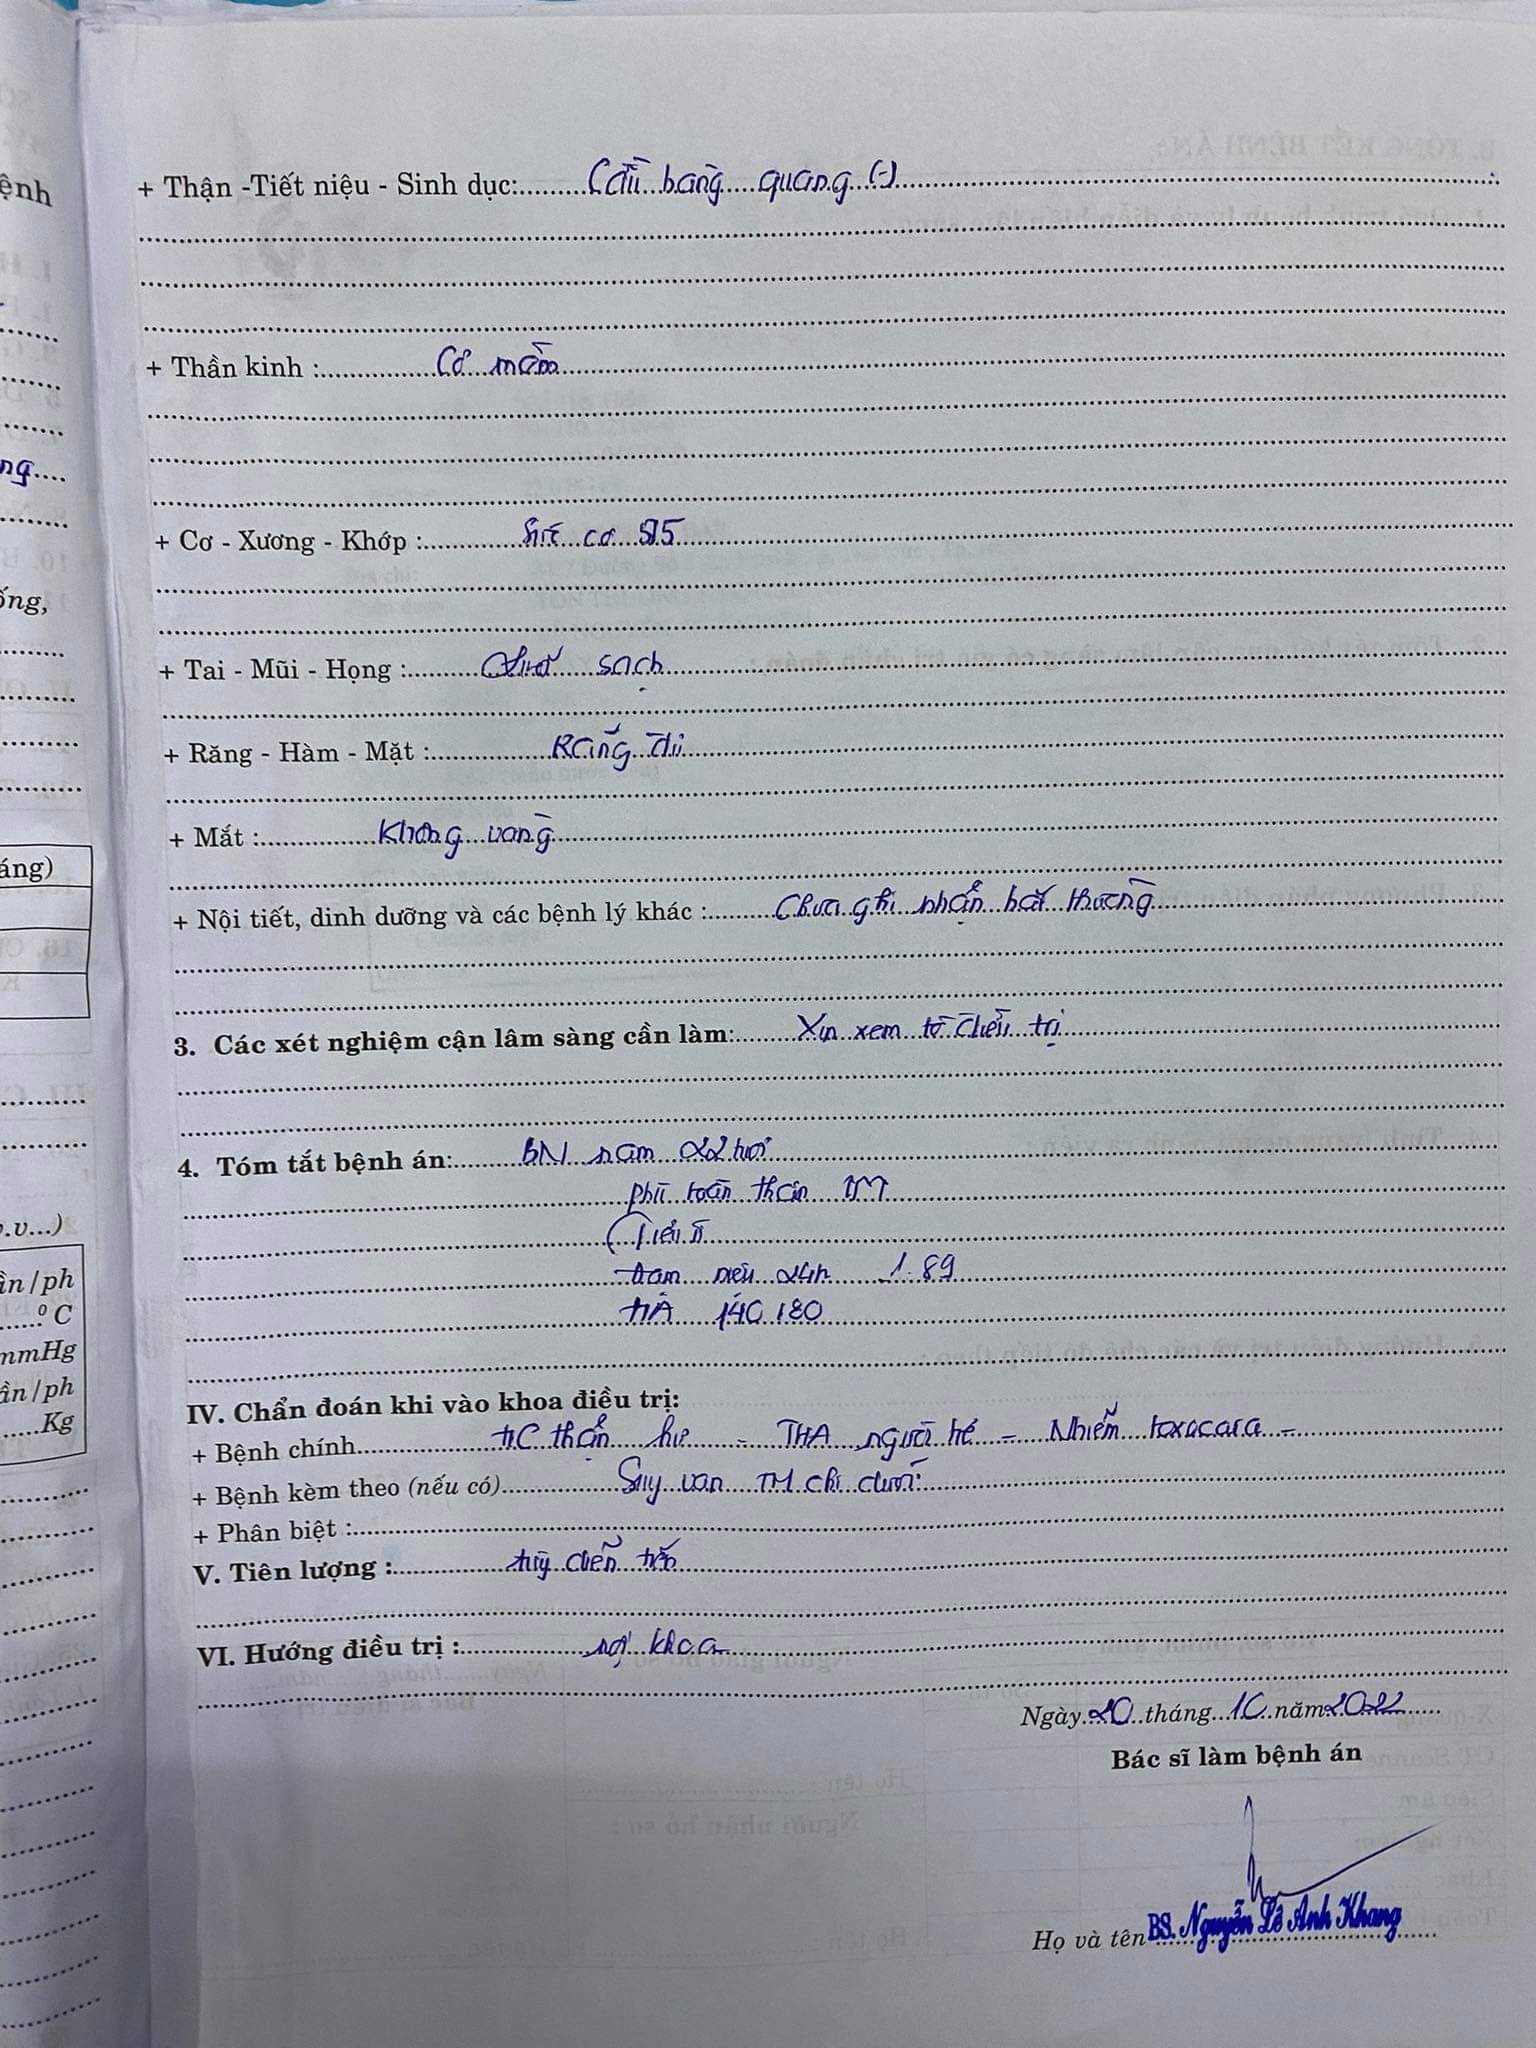 + Thận -Tiết niệu - Sinh dục: Cầu bàng quang (-)
+ Thần kinh : Cổ mềm
+ Cơ - Xương - Khớp : Sức cơ 5/5
+ Tai - Mũi - Họng : sạch
+ Răng - Hàm - Mặt : Răng đủ
+ Mắt : Không vàng
+ Nội tiết, dinh dưỡng và các bệnh lý khác : Chưa ghi nhận bất thường
3. Các xét nghiệm cận lâm sàng cần làm: Xin xem tờ điều trị
4. Tóm tắt bệnh án: BN nam 22 tuổi
phù toàn thân
Tiểu ít
đạm niệu 24h 1.89
HA 140/80
IV. Chẩn đoán khi vào khoa điều trị:
+ Bệnh chính HC thận hư - THA người trẻ - Nhiễm toxocara -
+ Bệnh kèm theo (nếu có) Suy van TM chi dưới
+ Phân biệt :
V. Tiên lượng : tùy diễn tiến
VI. Hướng điều trị : nội khoa
Ngày 20 tháng 10 năm 2022
Bác sĩ làm bệnh án
Họ và tên BS. Nguyễn Lê Anh Khang
ệnh
ng
ống,
áng)
v.v...)
ần/ph
⁰ C
mmHg
ần/ph
Kg